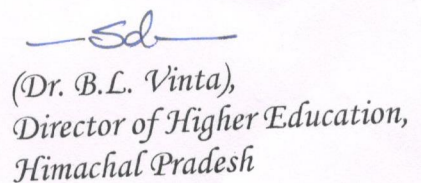 —Sd—
(Dr. B.L. Vinta),
Director of Higher Education,
Himachal Pradesh